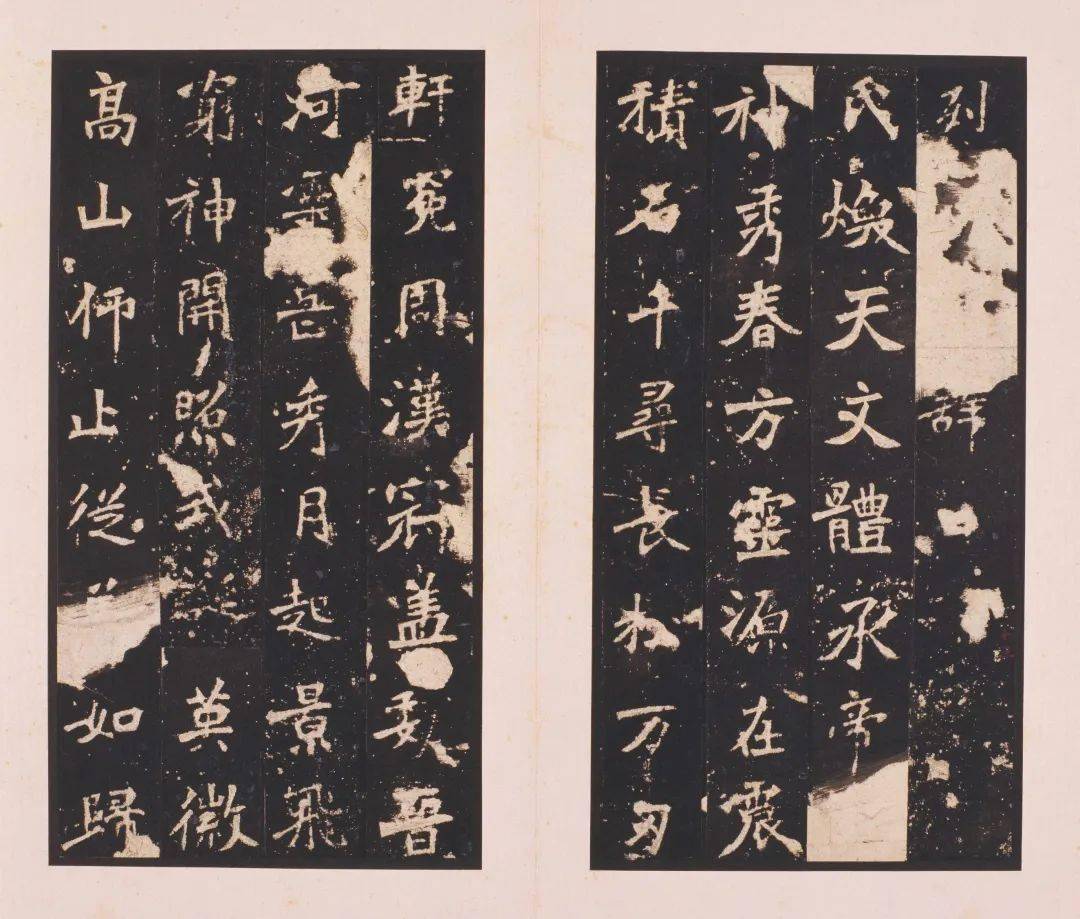 列辞曰
氏煥天文體承帝
神秀春方靈源在震
積石千尋長松万刃
軒冕周漢冠盖魏晉
河靈岳秀月起景飛
窮神開照式誕英徽
高山仰止從如歸